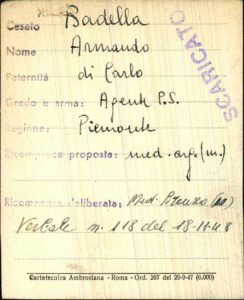 Casato Badella
Nome Armando
Paternità di Carlo
Grado e arma: Agente P.S.
Regione: Piemonte
Ricompensa proposta: med. arg. (m.)
Ricompensa deliberata: Med. Bronzo (m)
Verbale n. 118 del 18-11-48
SCARICATO
Cartotecnica Ambrosiana - Roma - Ord. 207 del 20-9-47 (6.000)